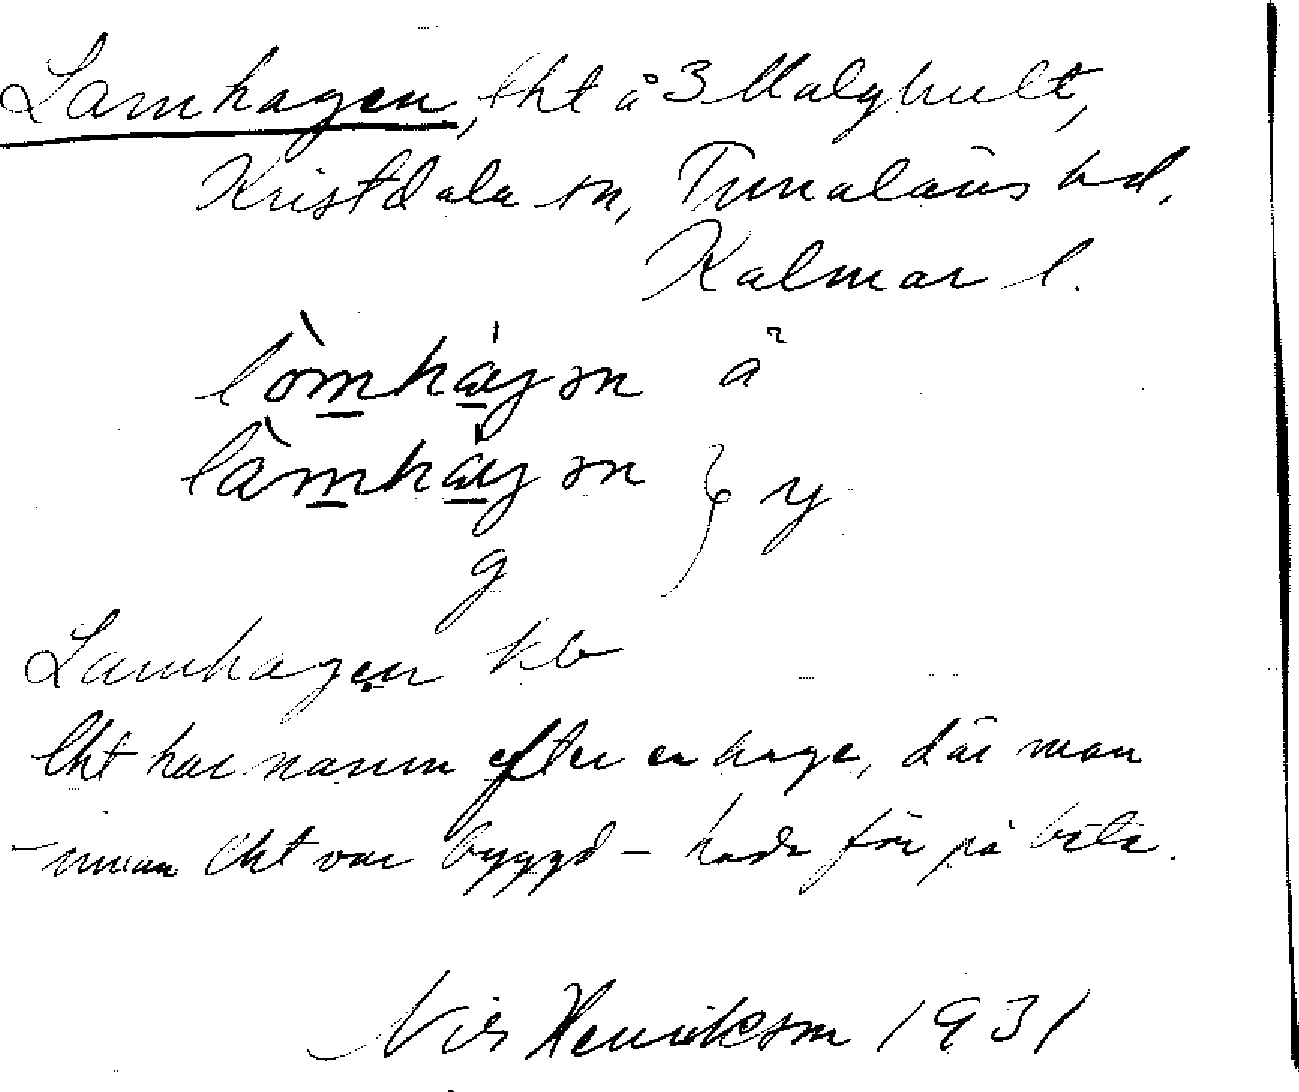 Lamhagen, lht å 3 Malghult,
Kristdala sn, Tunaläns hd.
Kalmar l.
lòmhágən å
làmhágən } y
g
Lamhagen kb
lht har namn efter en hage, där man
- innan lht var byggd - hade får på bete.
Nils Henrikson 1931